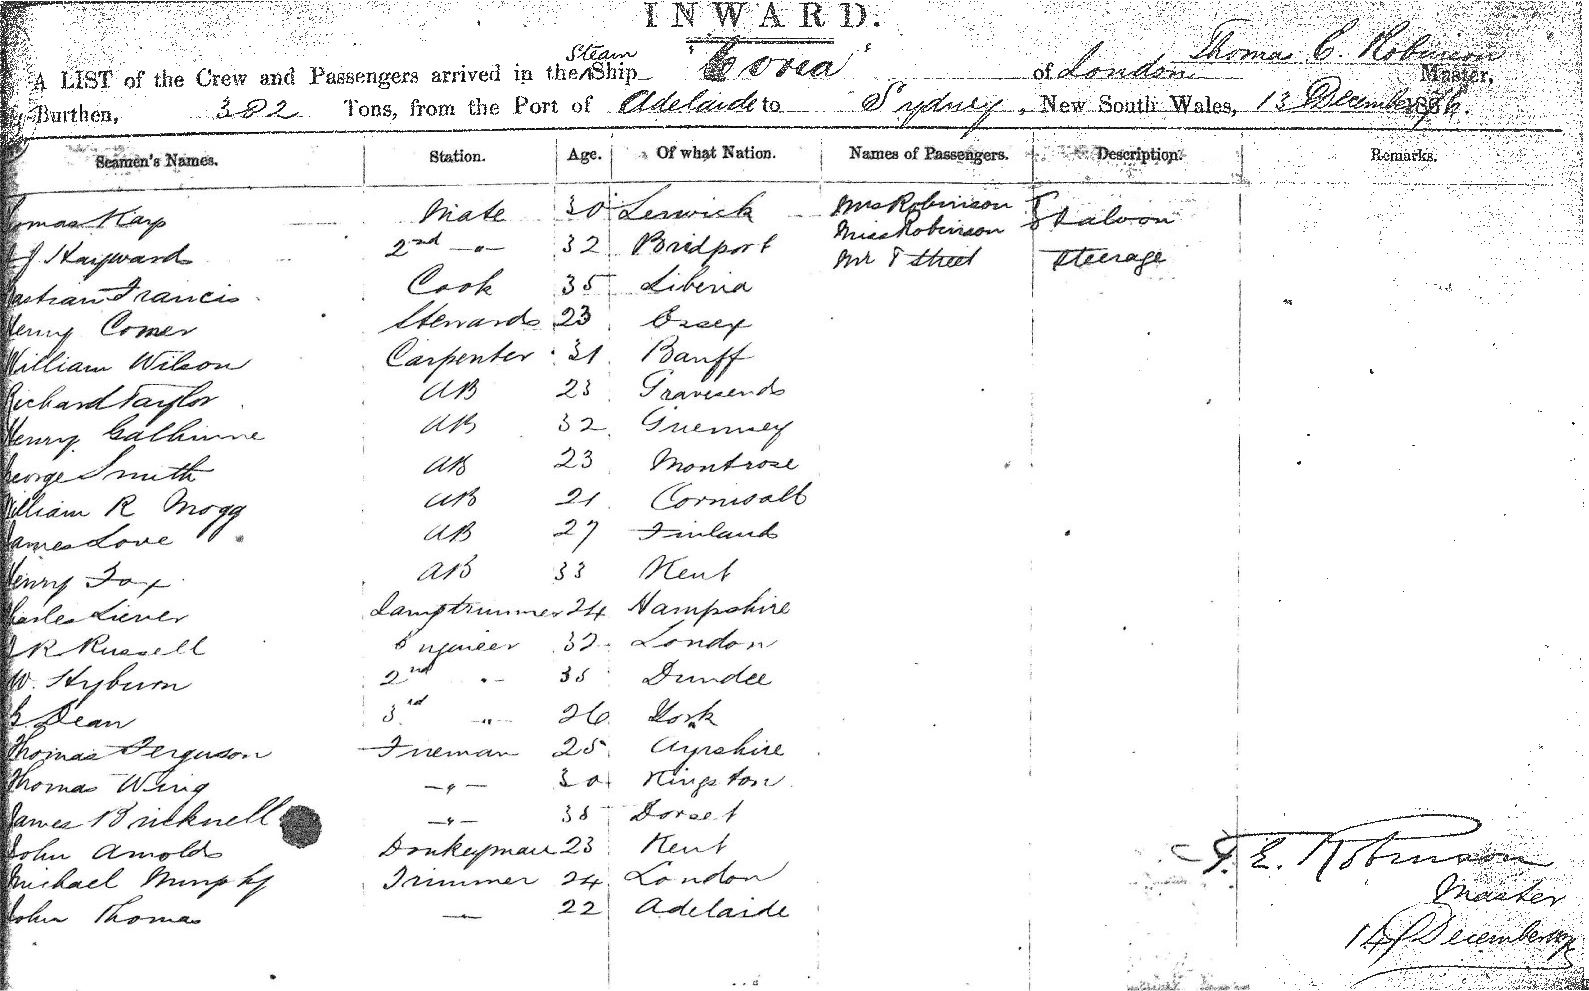 INWARD.
Steam
A LIST of the Crew and Passengers arrived in the Ship of London Thomas C. Robinson Master,
Burthen, 382 Tons, from the Port of Adelaide to Sydney, New South Wales, 13 December 1876.
Seamen's Names. Station. Age. Of what Nation. Names of Passengers. Description. Remarks.
Mate 30 Lerwick Mrs Robinson
Miss Robinson Saloon
Hayward 2nd -"- 32 Bridport Mr T Street Steerage
Francis Cook 35 Liberia
Henry Comer Stewards 23 Essex
William Wilson Carpenter 31 Banff
Richard Taylor AB 23 Gravesends
Henry AB 32 Guernsey
George Smith AB 23 Montrose
William R Mogg AB 21 Cornwall
James Love AB 27 Finland
Henry Fox AB 33 Kent
Charles Lamptrimmer 24 Hampshire
J R Russell Engineer 32 London
W. Hyburn 2nd -"- 35 Dundee
G Dean 3rd -"- 26 York
Thomas Ferguson Fireman 25 Ayrshire
Thomas Wing -"- 30 Kingston
James Bricknell -"- 38 Dorset
John Arnolds Donkeyman 23 Kent
Michael Murphy Trimmer 24 London
John Thomas — 22 Adelaide
T. E. Robinson
Master
14 December